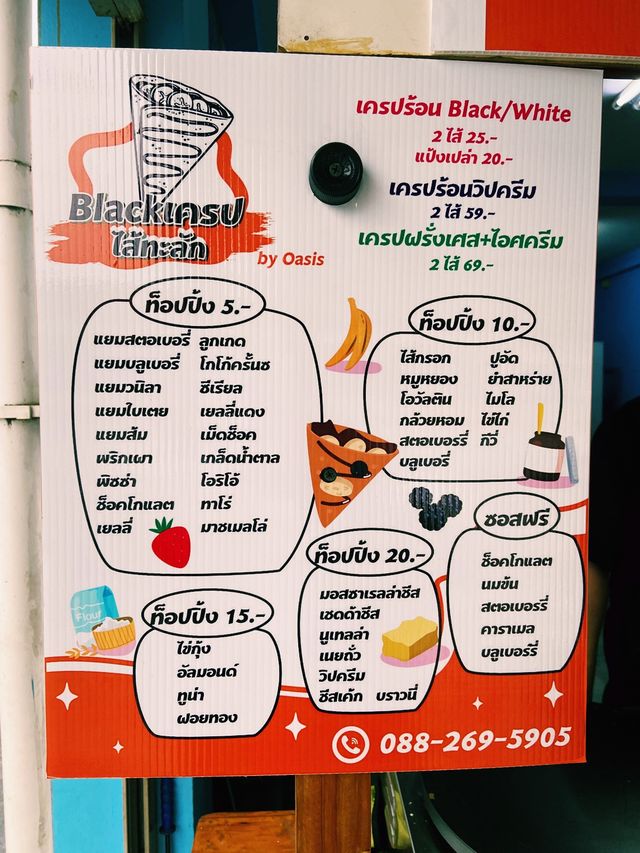 Blackเครป
ไส้ทะลัก
by Oasis
เครปร้อน Black/White
2 ไส้ 25.-
แป้งเปล่า 20.-
เครปร้อนวิปครีม
2 ไส้ 59.-
เครปฝรั่งเศส+ไอศครีม
2 ไส้ 69.-
ท็อปปิ้ง 5.-
แยมสตอเบอรี่ ลูกเกด
แยมบลูเบอรี่ โกโก้ครั้นช
แยมวนิลา ซีเรียล
แยมใบเตย เยลลี่แดง
แยมส้ม เม็ดช็อค
พริกเผา เกล็ดน้ำตาล
พิซซ่า โอริโอ้
ช็อคโกแลต ทาโร่
เยลลี่ มาชเมลโล่
ท็อปปิ้ง 10.-
ไส้กรอก ปูอัด
หมูหยอง ยำสาหร่าย
โอวัลติน ไมโล
กล้วยหอม ไข่ไก่
สตอเบอรรี่ กีวี่
บลูเบอรี่
ท็อปปิ้ง 15.-
ไข่กุ้ง
อัลมอนด์
ทูน่า
ฝอยทอง
ท็อปปิ้ง 20.-
มอสซาเรลล่าชีส
เชดด้าชีส
นูเทลล่า
เนยถั่ว
วิปครีม
ชีสเค้ก บราวนี่
ซอสฟรี
ช็อคโกแลต
นมข้น
สตอเบอร์รี่
คาราเมล
บลูเบอร์รี่
Flour
088-269-5905